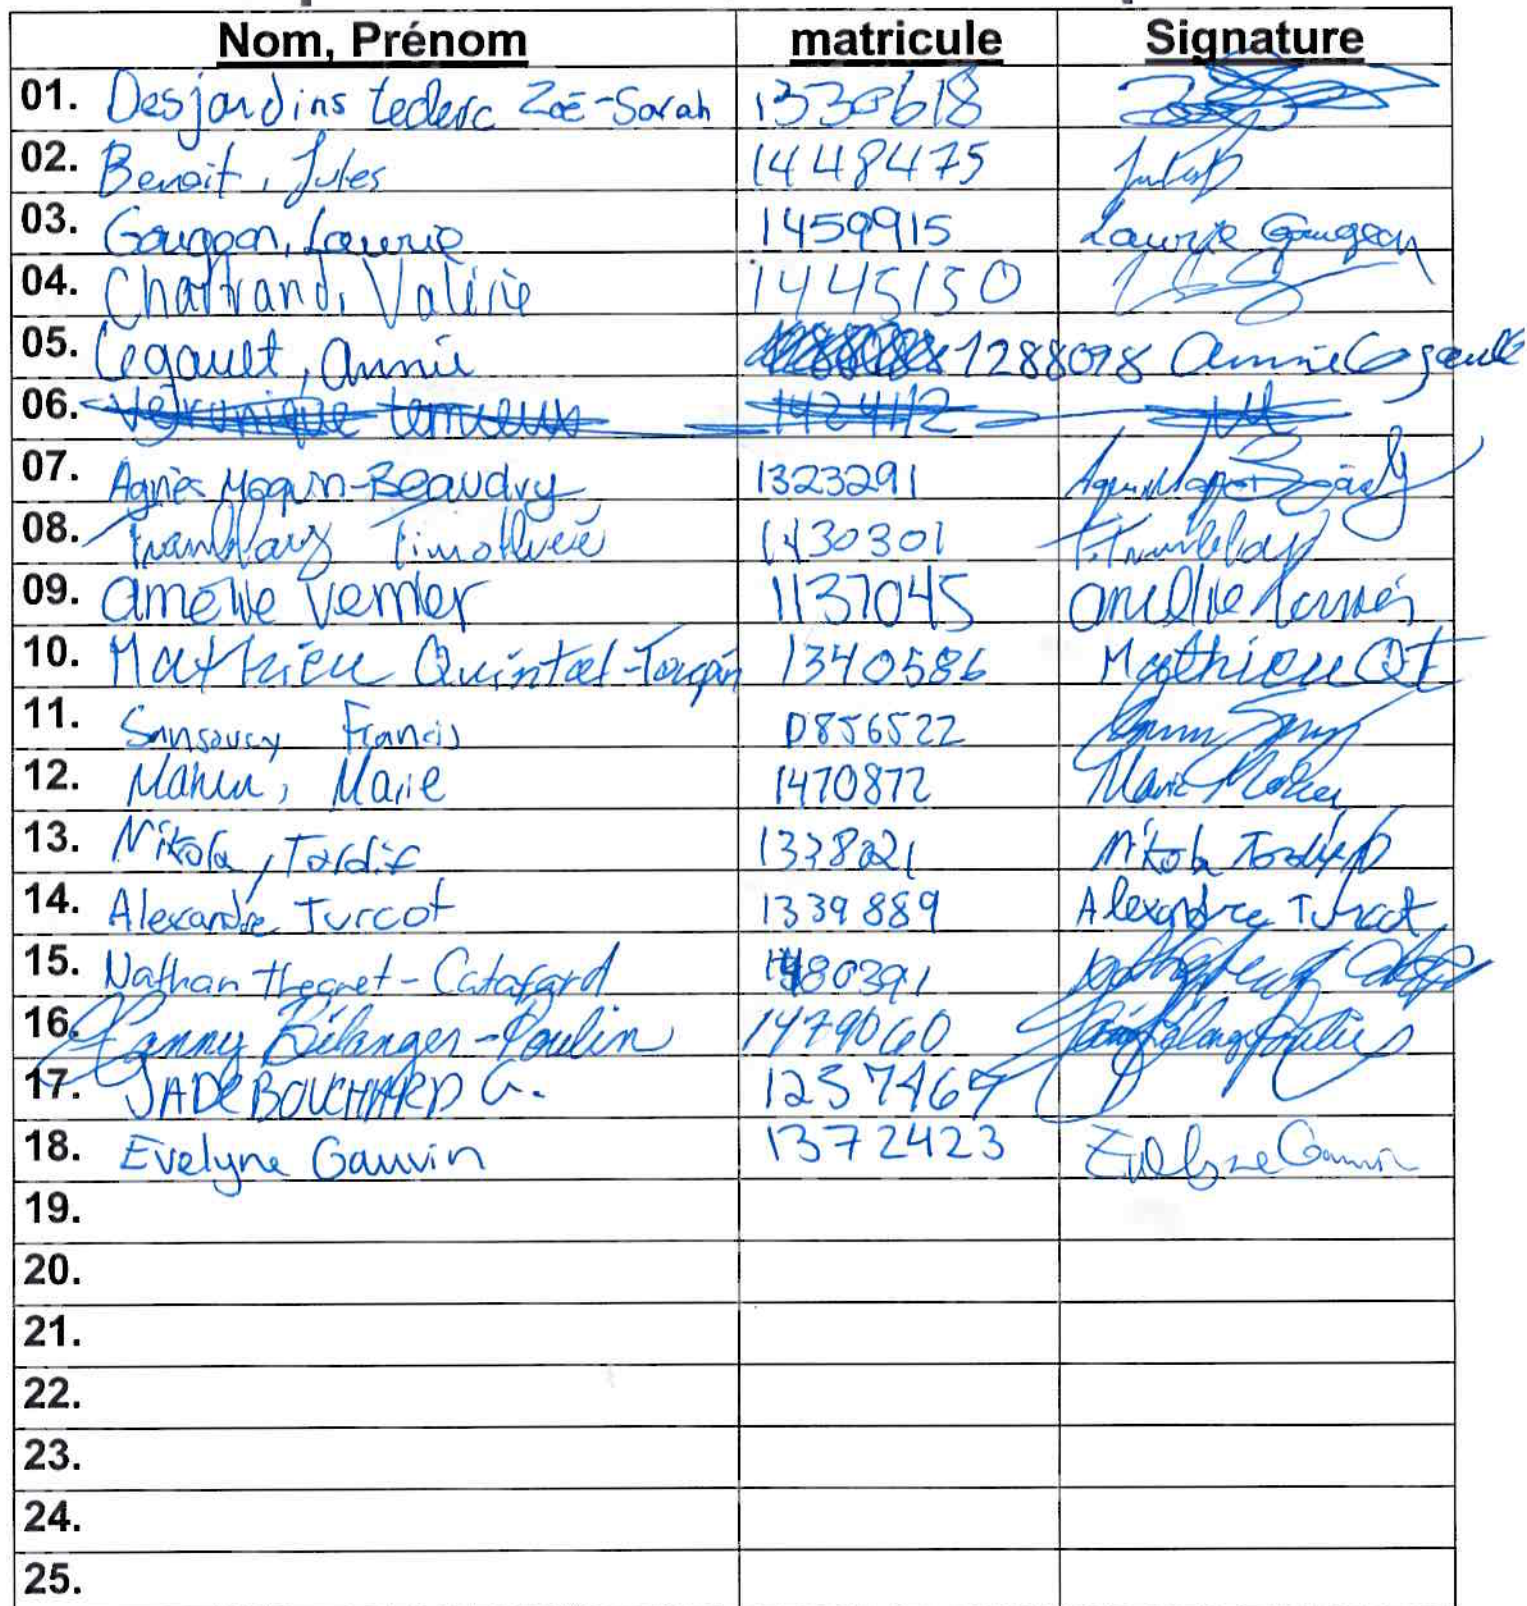 Nom, Prénom matricule Signature
01. Desjardins Leclerc Zoë-Sarah 1330618
02. Benoit, Jules 1448475
03. Gougeon, Laurie 1459915 Laurie Gougeon
04. Chartrand, Valérie 1445150
05. Legault, Annie 1288098 Annie Legault
06. 1424112
07. Agnès Moquin-Beaudry 1323291
08. Tremblay Timothée 1430301 T. Tremblay
09. Amélie Vernier 1137045 Amélie
10. Mathieu Quintal- 1340586 Mathieu QT
11. Sansoucy Francis 0856522
12. Maheu, Marie 1470872 Marie Maheu
13. Nikola, Tardif 1338221 Nikola Tardif
14. Alexandre Turcot 1339889 Alexandre Turcot
15. Nathan -Catafard 1480391
16. Fanny Bélanger-Poulin 1479060
17. JADE BOUCHARD G.
18. Evelyne Gauvin 1372423 Evelyne Gauvin
19.
20.
21.
22.
23.
24.
25.